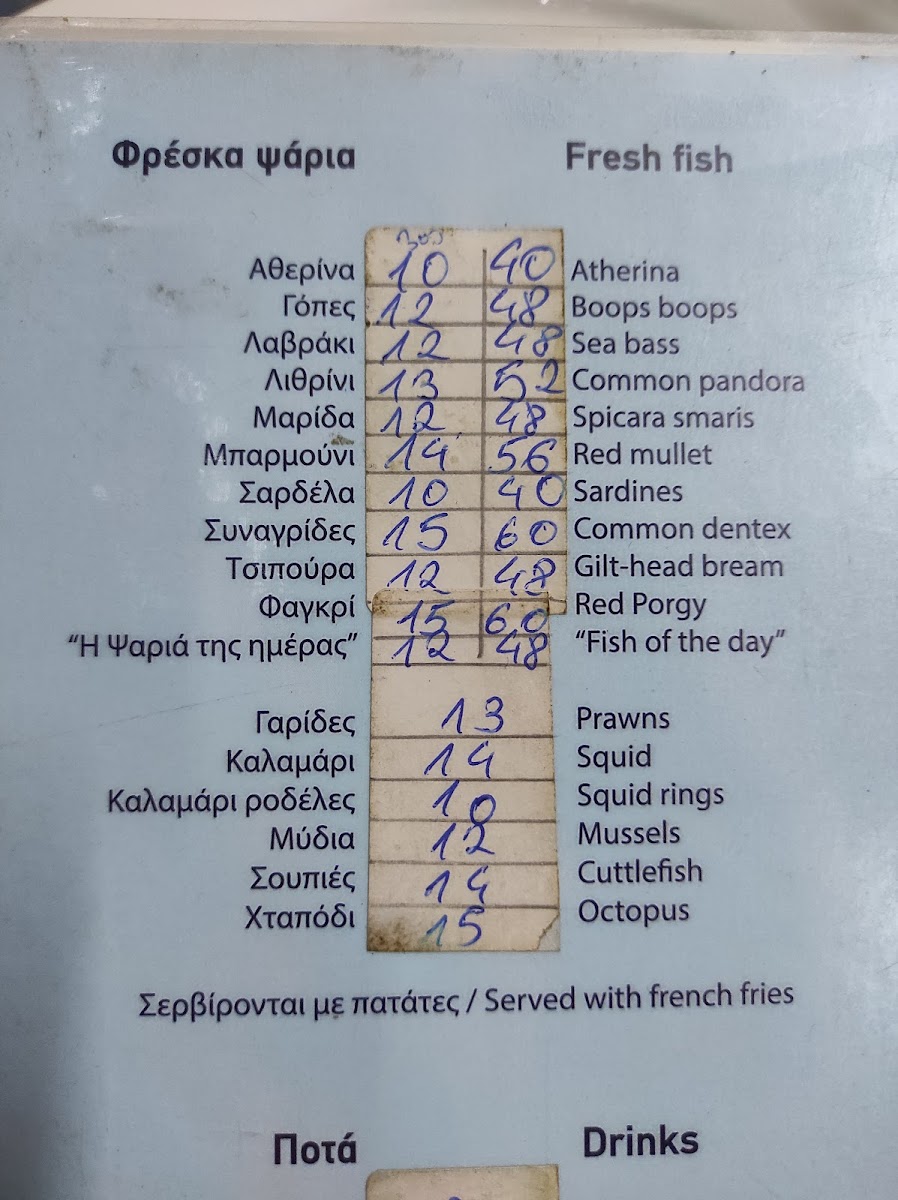 Φρέσκα ψάρια Fresh fish
Αθερίνα 10 40 Atherina
Γόπες 12 48 Boops boops
Λαβράκι 12 48 Sea bass
Λιθρίνι 13 52 Common pandora
Μαρίδα 12 48 Spicara smaris
Μπαρμούνι 14 56 Red mullet
Σαρδέλα 10 40 Sardines
Συναγρίδες 15 60 Common dentex
Τσιπούρα 12 48 Gilt-head bream
Φαγκρί 15 60 Red Porgy
“Η Ψαριά της ημέρας” 12 48 “Fish of the day”
Γαρίδες 13 Prawns
Καλαμάρι 14 Squid
Καλαμάρι ροδέλες 10 Squid rings
Μύδια 12 Mussels
Σουπιές 14 Cuttlefish
Χταπόδι 15 Octopus
Σερβίρονται με πατάτες / Served with french fries
Ποτά Drinks